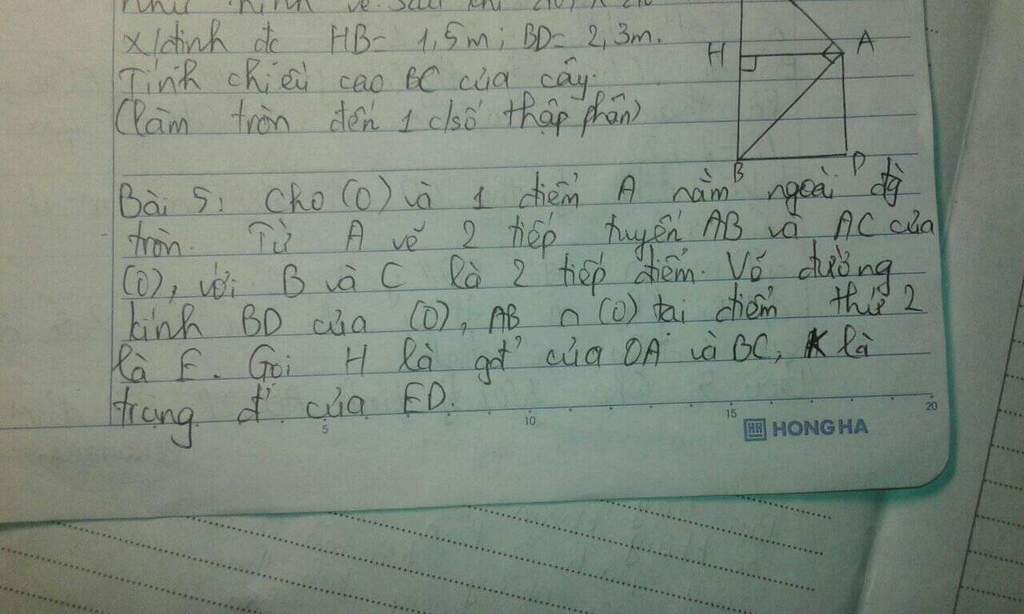 như hình vẽ sau khi
x/định đc HB= 1,5m; BD= 2,3m.
Tính chiều cao BC của cây.
(làm tròn đến 1 c/số thập phân)
H
A
B
D
Bài 5: Cho (O) và 1 điểm A nằm ngoài đg
tròn. Từ A vẽ 2 tiếp tuyến AB và AC của
(O), với B và C là 2 tiếp điểm. Vẽ đường
kính BD của (O), AB ∩ (O) tại điểm thứ 2
là E. Gọi H là gđ' của OA và BC, K là
trung đ' của ED.
5 10 15 20
HONG HA